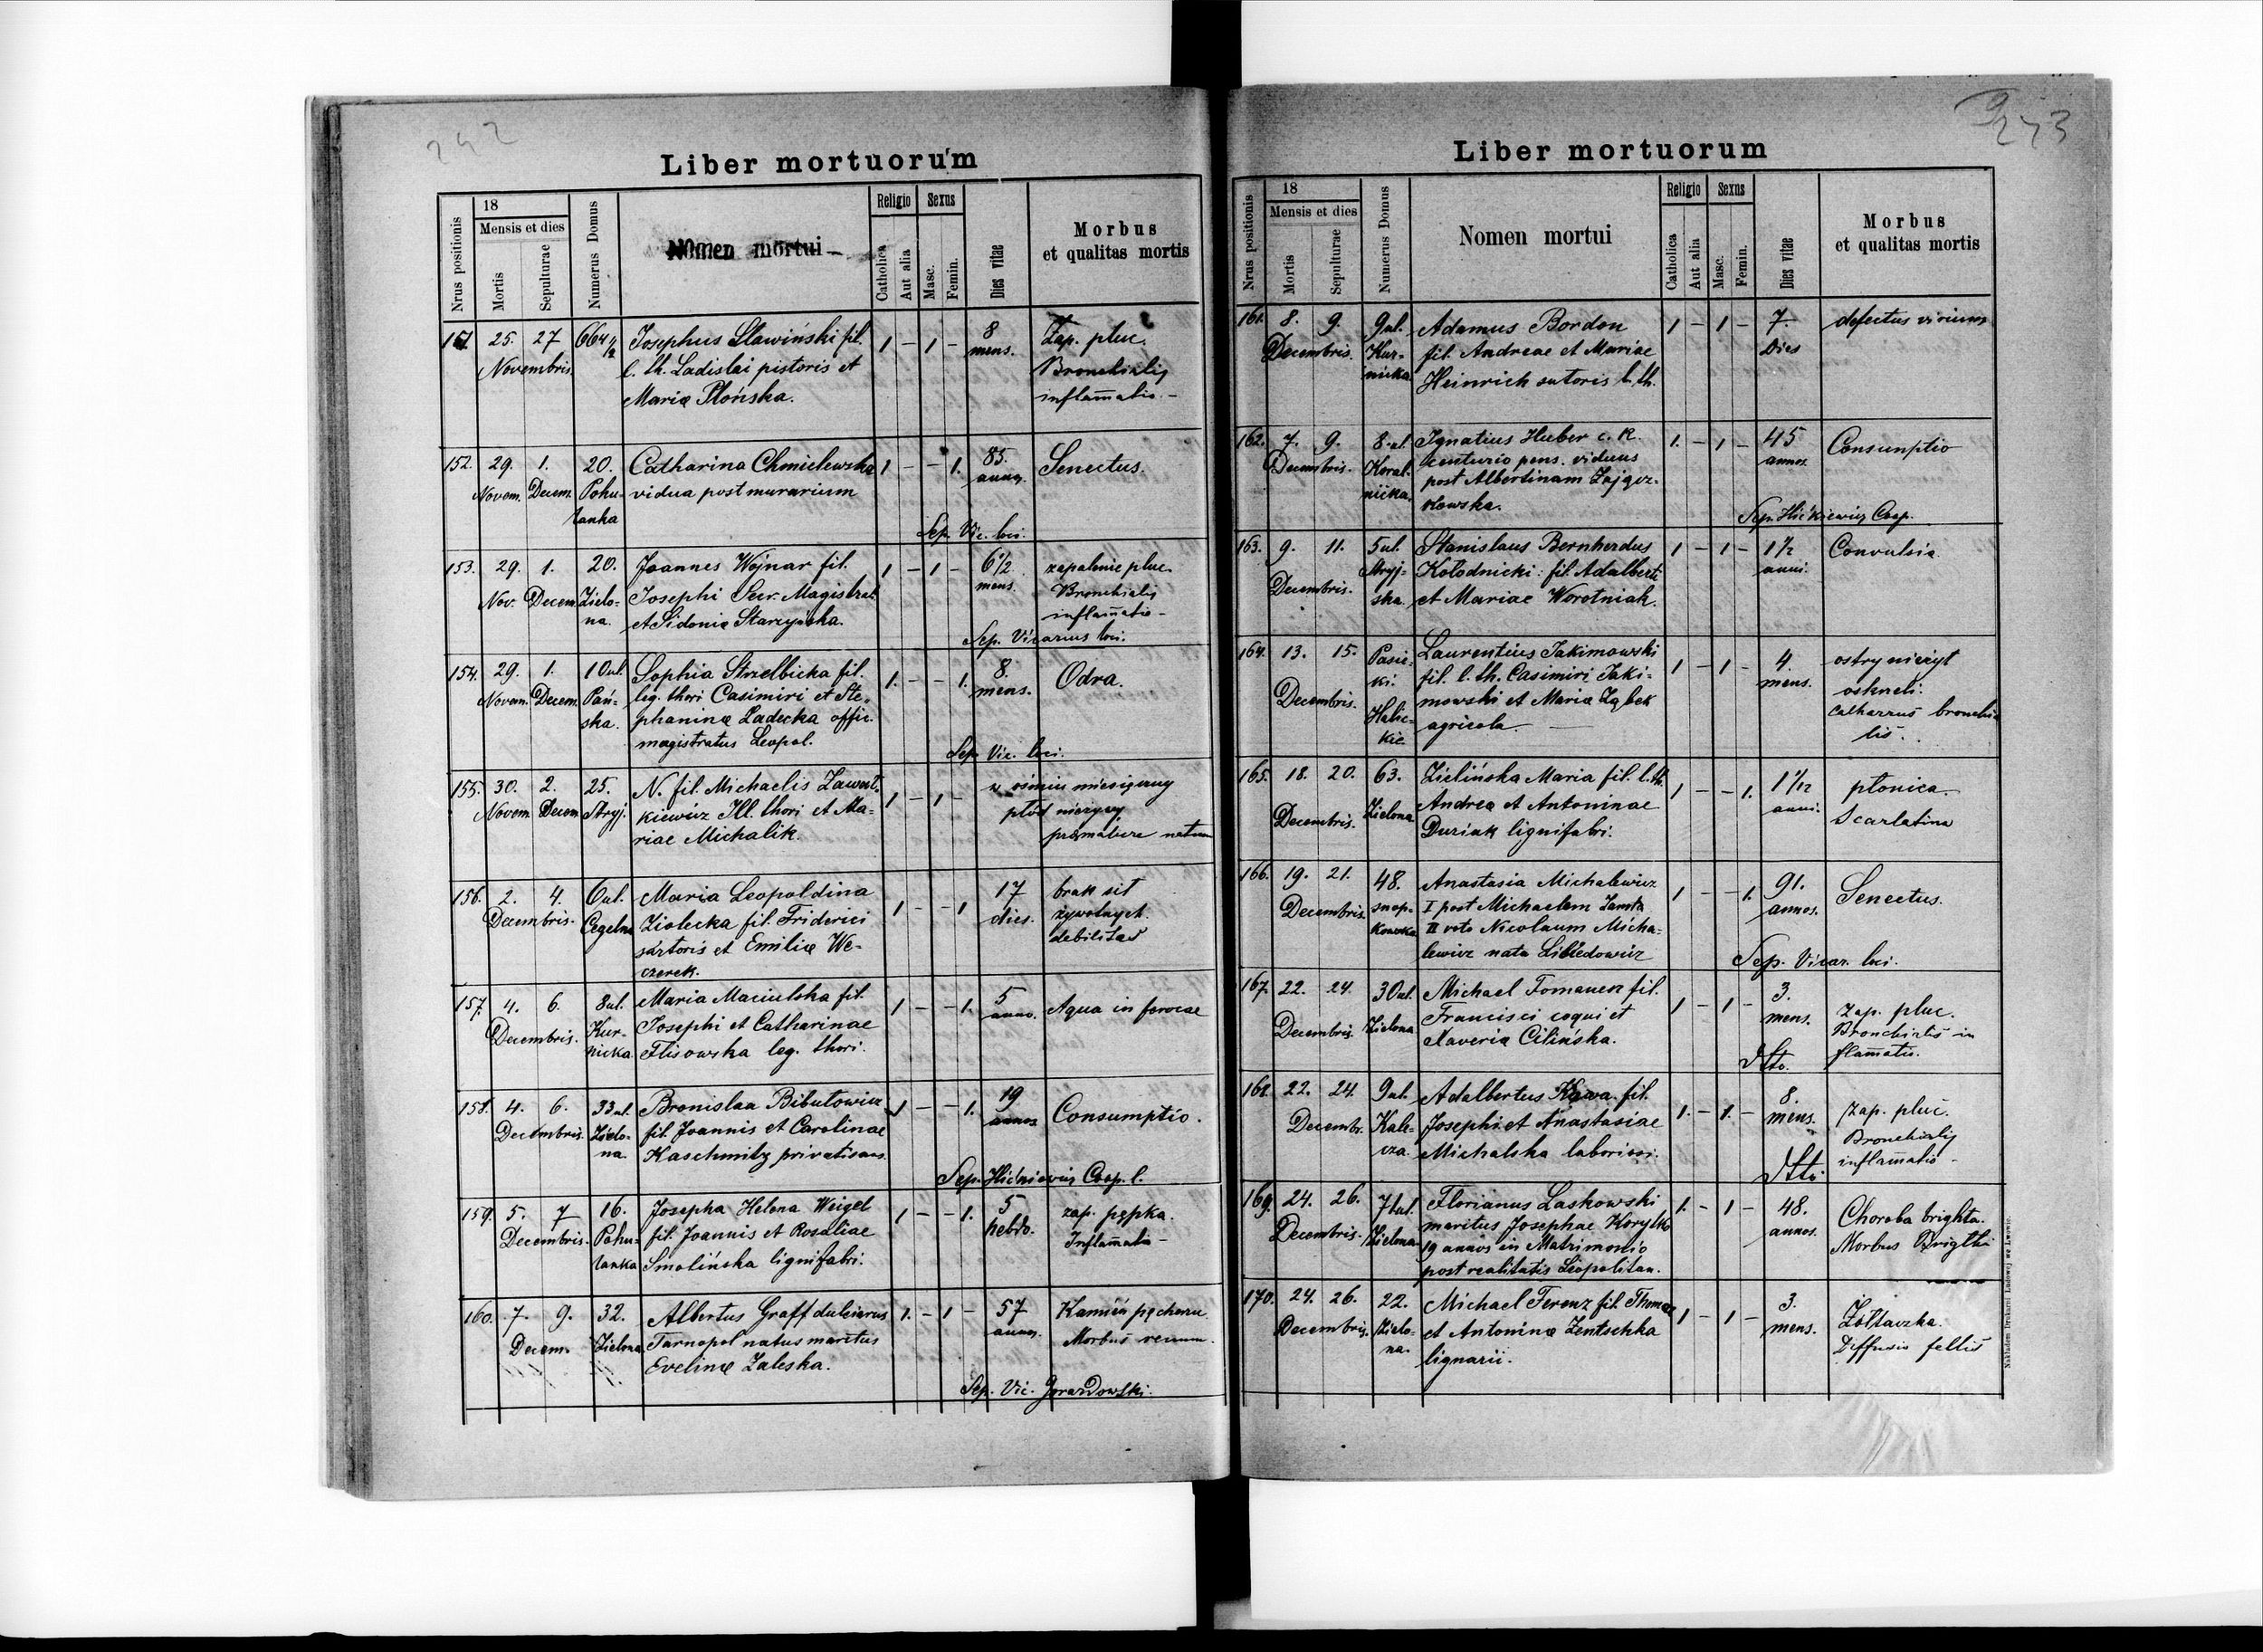 242
Liber mortuorum
Nrus positionis
18
Mensis et dies
Mortis
Sepulturae
Numerus Domus
Nomen mortui
Religio
Catholica
Aut alia
Sexus
Masc.
Femin.
Dies vitae
Morbus
et qualitas mortis
151. 25. 27 664 Josephus Sławiński fil. 1 - 1 - 8 Zap. płuc.
Novembris. l. th. Ladislai pistoris et mens. Bronchialis
Mariæ Płońska. inflam̄atio.-
152. 29. 1. 20. Catharina Chmielewska 1 - - 1. 85. Senectus.
Novem. Decem. Pohu- vidua post murarium annos.
lanka
Sep. Vic. loci.
153. 29. 1. 20. Joannes Wójnar fil. 1 - 1 - 6 1/2 zapalenie płuc.
Nov. Decem. Zielo- Josephi Secr. Magistrat mens. Bronchialis
na. et Sidoniæ Starzyńska. inflam̄atio -
Sep. Vicarius loci.
154. 29. 1. 10 ul. Sophia Strzelbicka fil. 1. - - 1. 8. Odra.
Novem. Decem. Pań- leg. thori Casimiri et Ste- mens.
ska. phaninæ Ładecka offic.
magistratus Leopol.
Sep. Vic. loci.
155. 30. 2. 25. N. fil. Michaelis Zawał- 1 - 1 - w ósmiu miesięczny
Novem. Decem. Stryj. kiewicz Ill. thori et Ma- płód nieżywy
riae Michalik. præmature natum
156. 2. 4. 6 ul. Maria Leopoldina 1 - - 1 17 brak sił
Decembris. Cegelna Ziolecka fil. Friderici dies. żywotnych.
sartoris et Emiliæ We- debilitas
czerek.
157. 4. 6. 8 ul. Maria Maciulska fil. 1 - - 1. 5 Aqua in
Decembris. Kur- Josephi et Catharinae anno.
nicka Flisowska leg. thori.
158. 4. 6. 33 ul. Bronislaa Bibutowicz 1 - - 1. 19 Consumptio.
Decembris. Zielo- fil. Joannis et Carolinae annos
na. Kaschnitz privatisans.
Sep. Hićkiewicz Coop. l.
159. 5. 7 16. Josepha Helena Weigel 1 - - 1. 5 zap. pępka.
Decembris. Pohu- fil. Joannis et Rosaliae hebdo. Inflam̄atio -
lanka Smolińska lignifabri.
160. 7. 9. 32. Albertus Graff dulciarus 1. - 1 - 57 Kamień pęcherzu
Decem. Zielona Tarnopol natus maritus annos. Morbus renum.
Evelinæ Zaleska.
Sep. Vic. Gorazdowski.
243
Liber mortuorum
Nrus positionis
18
Mensis et dies
Mortis
Sepulturae
Numerus Domus
Nomen mortui
Religio
Catholica
Aut alia
Sexus
Masc.
Femin.
Dies vitae
Morbus
et qualitas mortis
161. 8. 9. 9 ul. Adamus Bordon 1 - 1 - 7. defectus virium
Decembris. Kur- fil. Andreae et Mariae Dies
nicka Heinrich sutoris l. th.
162. 7. 9. 8. ul. Ignatius Huber c. R. 1. - 1 - 45 Consumptio
Decembris. Koral- centurio pens. viduus annos.
nicka. post Albertinam Zającz-
kowska.
Sep. Hićkiewicz Coop.
163. 9. 11. 5 ul. Stanislaus Bernherdus 1 - 1 - 1 1/2 Convulsia.
Decembris. Stryj- Kołodnicki: fil. Adalberti anni.
ska. et Mariae Worotniak.
164. 13. 15. Pasie- Laurentius Jakimowski 1 - 1 - 4. ostry nieżyt
ki. fil. l. th. Casimiri Jaki- mens. oskrzeli.
Decembris. Halic- mowski et Mariæ Ząbek Catharrus bronchia
kie agricola. lis.
165. 18. 20. 63. Zielińska Maria fil. l. th. 1 - - 1. 1 1/12 płonica.
Decembris. Zielona Andreæ et Antoninae anni. Scarlatina
Duriak lignifabri.
166. 19. 21. 48. Anastasia Michalewicz 1 - - 1. 91. Senectus.
Decembris. snop- I post Michaelem annos.
kowska II voto Nicolaum Micha-
lewicz nata
Sep. Vicar. loci.
167. 22. 24 30 ul. Michael Tomanek fil. 1 - 1 - 3. zap. płuc.
Decembris. Zielona Francisci coqui et mens. Bronchialis in
Xaveriæ Cilińska. dtto. flam̄atio.
168. 22. 24. 9 ul. Adalbertus Kawa fil. 1. - 1. - 8. zap. płuc.
Decembr. Kale- Josephi et Anastasiae mens. Bronchialis
cza. Michalska laboriosi. dtto. inflam̄atio -
169. 24. 26. 71 ul. Florianus Laskowski 1. - 1 - 48. Choroba brighta.
Decembris. Zielona maritus Josephae Koryłko annos. Morbus Brigthi
19 annos in Matrimonio
post realitatis Leopolitan.
170. 24. 26. 22. Michael Ferenz fil. Thomæ 1 - 1 - 3. Żółtaczka.
Decembris. Zielo- et Antoninæ Zentschka mens. Diffusio fellis
na. lignarii.
Nakładem Drukarni Ludowej we Lwowie.